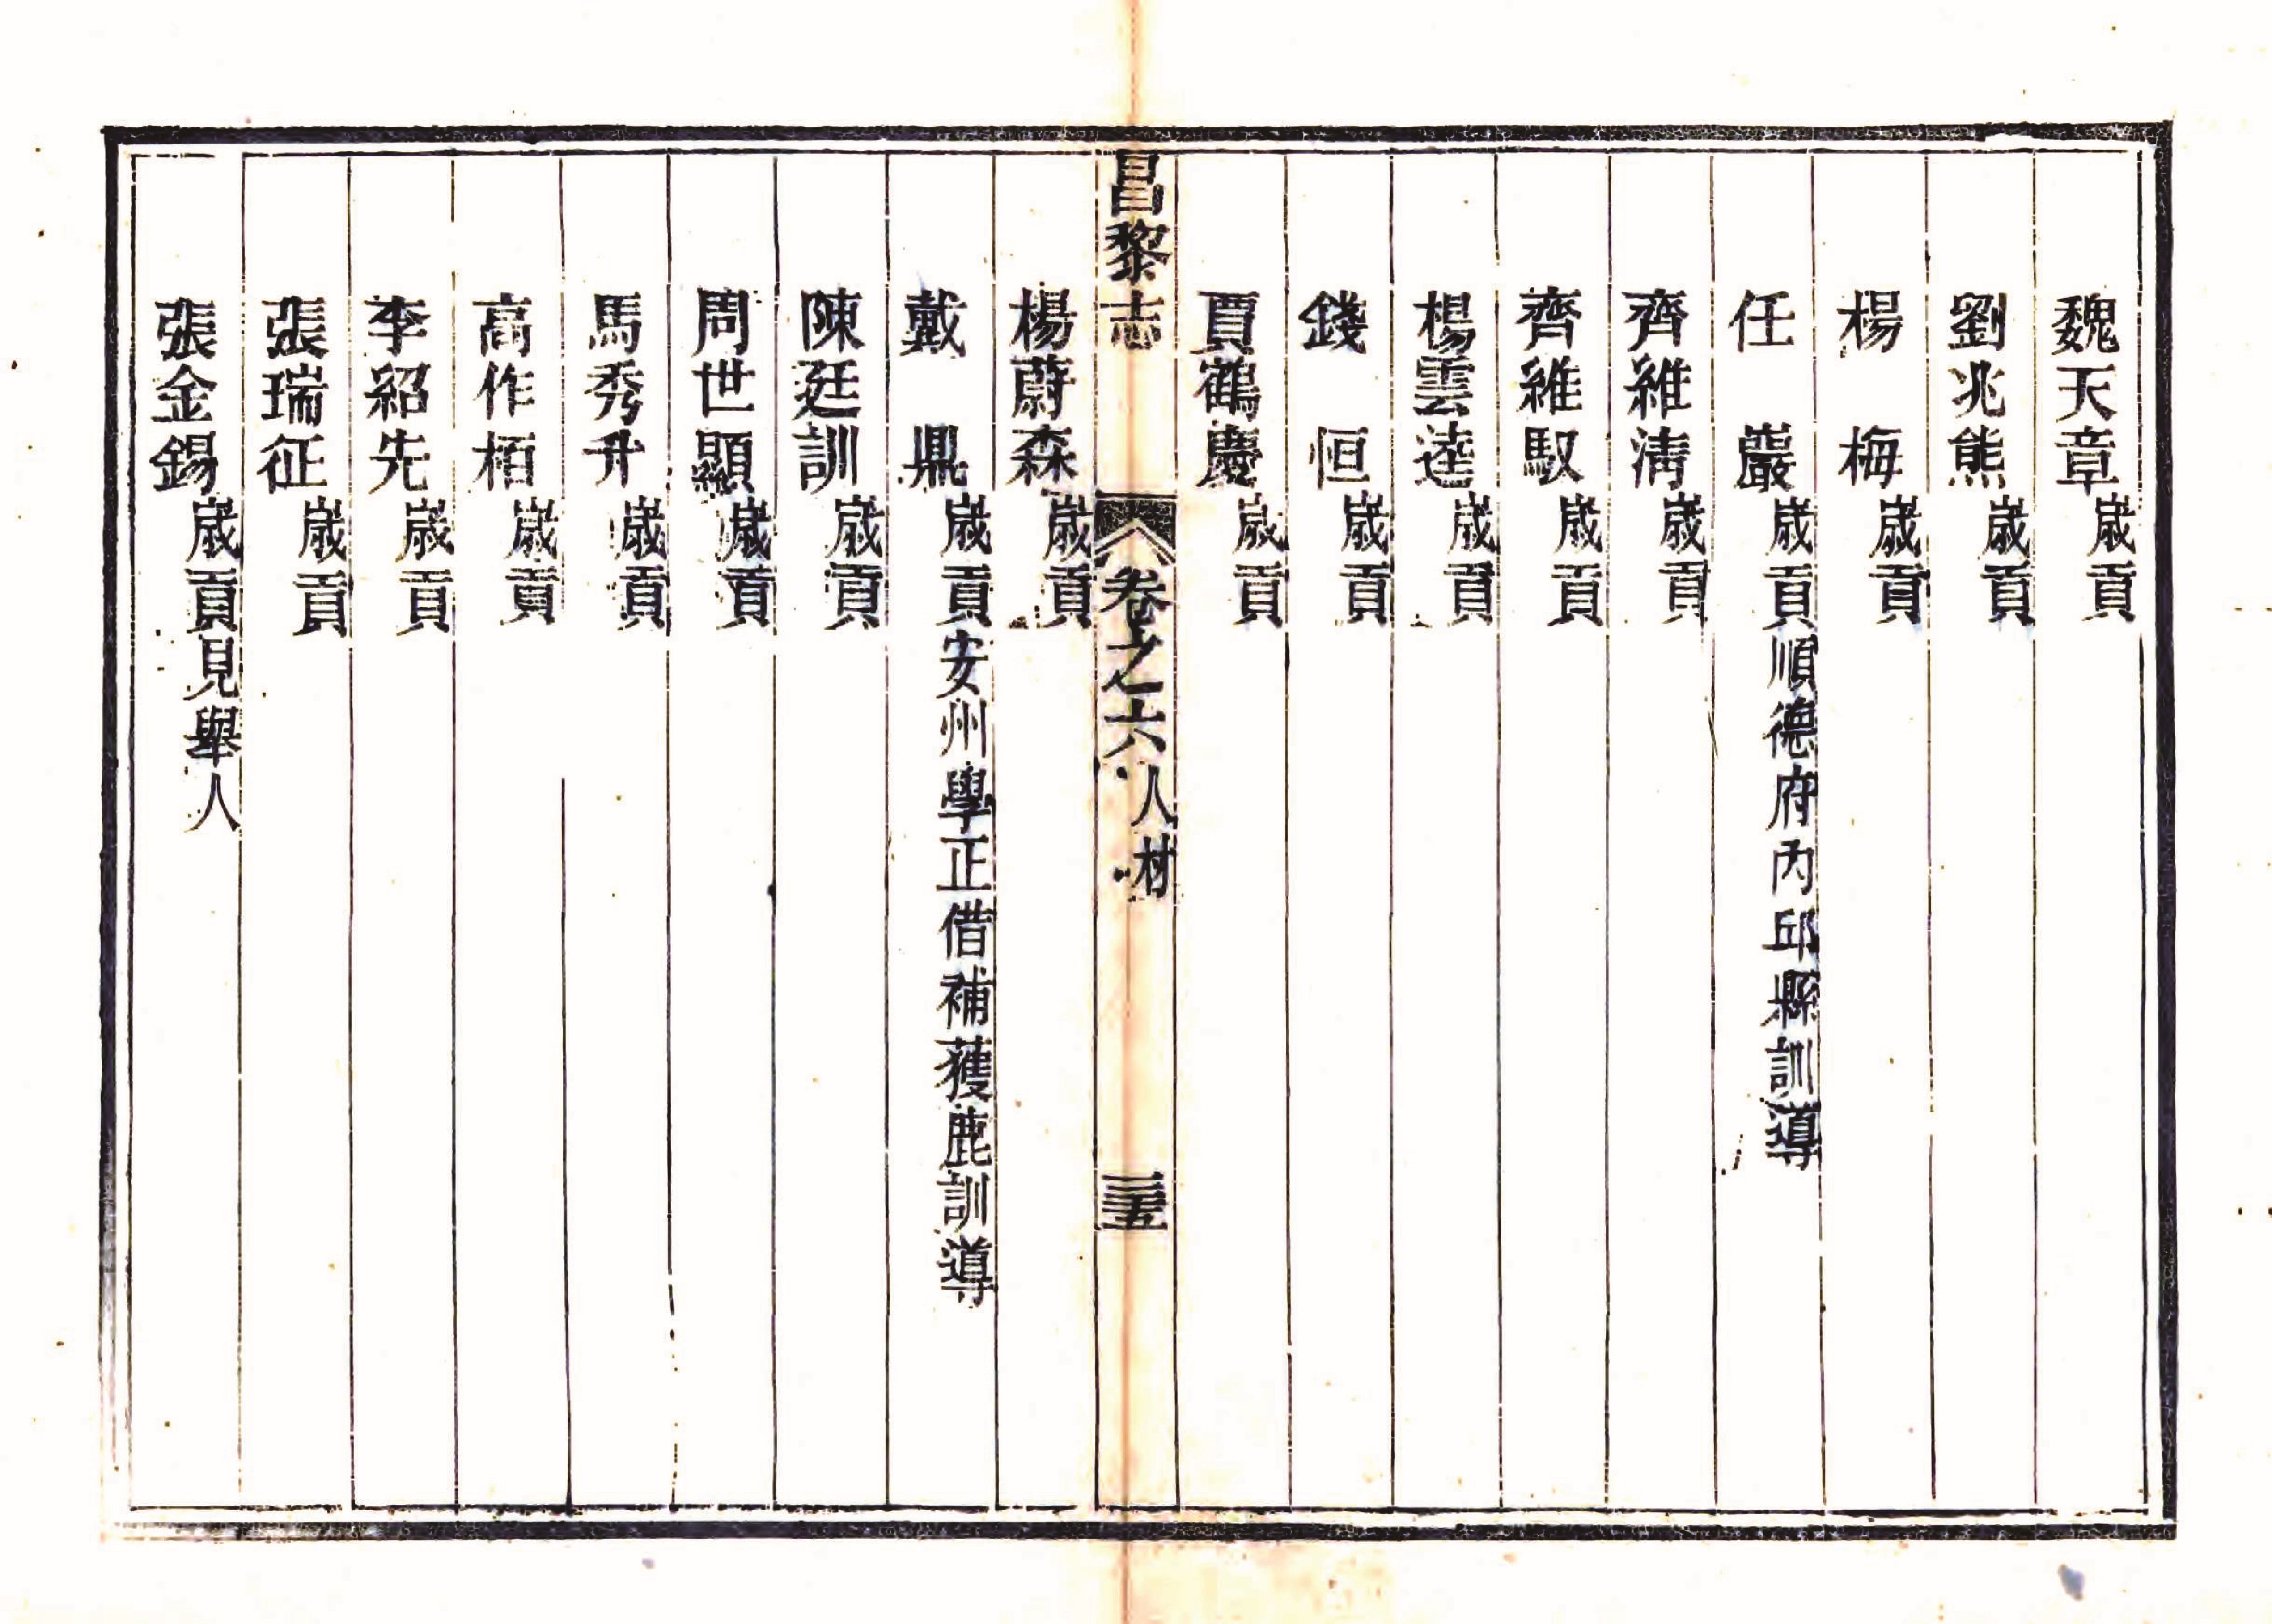 魏天章歲貢
劉兆熊歲貢
楊　梅歲貢
任　巖歲貢順德府內邱縣訓導
齊維清歲貢
齊維馭歲貢
楊雲逵歲貢
錢　恒歲貢
賈鶴慶歲貢
昌黎志　卷之六　人材　三十五
楊蔚森歲貢
戴　鼎歲貢安州學正借補獲鹿訓導
陳廷訓歲貢
周世顯歲貢
馬秀升歲貢
高作栢歲貢
李紹先歲貢
張瑞征歲貢
張金錫歲貢見舉人